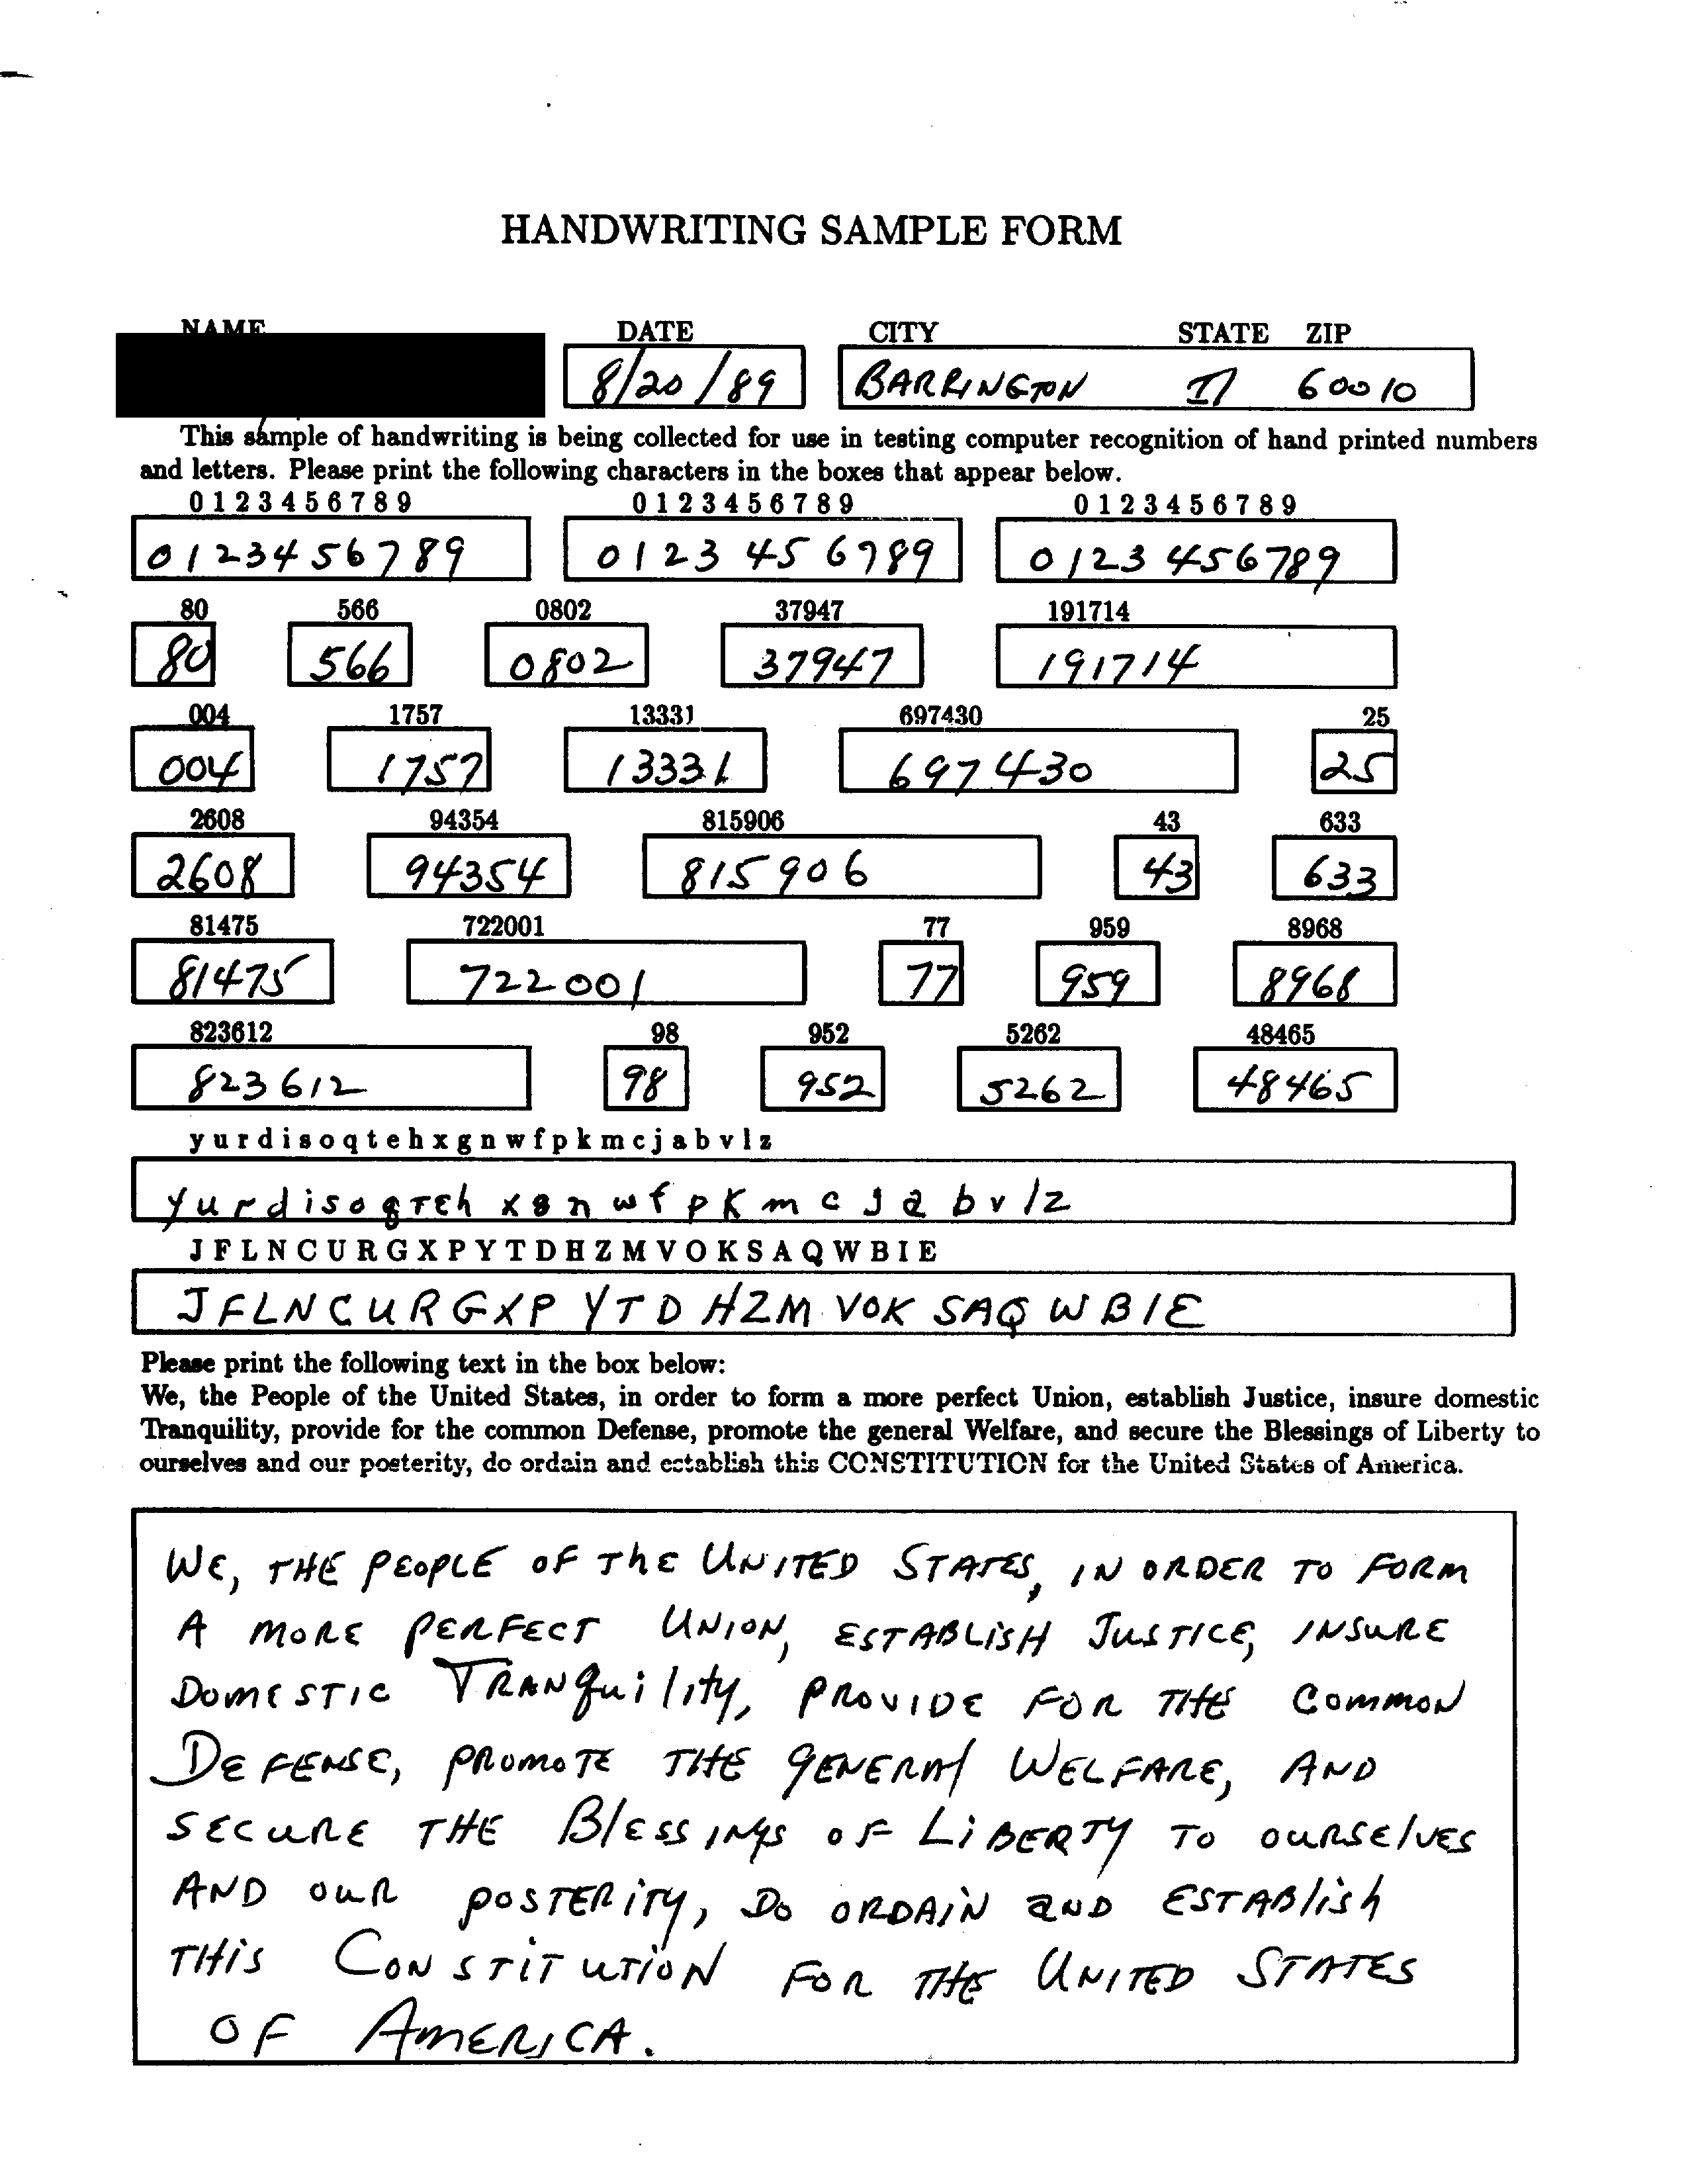 HANDWRITING SAMPLE FORM
NAME DATE CITY STATE ZIP
8/20/89 BARRINGTON Il 60010
This sample of handwriting is being collected for use in testing computer recognition of hand printed numbers
and letters. Please print the following characters in the boxes that appear below.
0 1 2 3 4 5 6 7 8 9 0 1 2 3 4 5 6 7 8 9 0 1 2 3 4 5 6 7 8 9
0123456789 0123456789 0123456789
80 566 0802 37947 191714
80 566 0802 37947 191714
004 1757 13331 697430 25
004 1757 13331 697430 25
2608 94354 815906 43 633
2608 94354 815906 43 633
81475 722001 77 959 8968
81475 722001 77 959 8968
823612 98 952 5262 48465
823612 98 952 5262 48465
y u r d i s o q t e h x g n w f p k m c j a b v l z
y u r d i s o q t e h x g n w f p k m c j a b v l z
J F L N C U R G X P Y T D H Z M V O K S A Q W B I E
J F L N C U R G X P Y T D H Z M V O K S A Q W B I E
Please print the following text in the box below:
We, the People of the United States, in order to form a more perfect Union, establish Justice, insure domestic
Tranquility, provide for the common Defense, promote the general Welfare, and secure the Blessings of Liberty to
ourselves and our posterity, do ordain and establish this CONSTITUTION for the United States of America.
WE, THE PEOPLE OF ThE UNITED STATES, IN ORDER TO FORM
A MORE PERFECT UNION, ESTABLISH JUSTICE, INSURE
DOMESTIC TRANquility, PROVIDE FOR THE COMMON
DEFENSE, PROMOTE THE gENERAl WELFARE, AND
SECURE THE BlESSINgS OF LiBERTY TO OURSElVES
AND OUR POSTERiTy, DO ORDAiN aND ESTABlish
THiS CONSTiTUTiON FOR THE UNITED STATES
OF AMERICA.